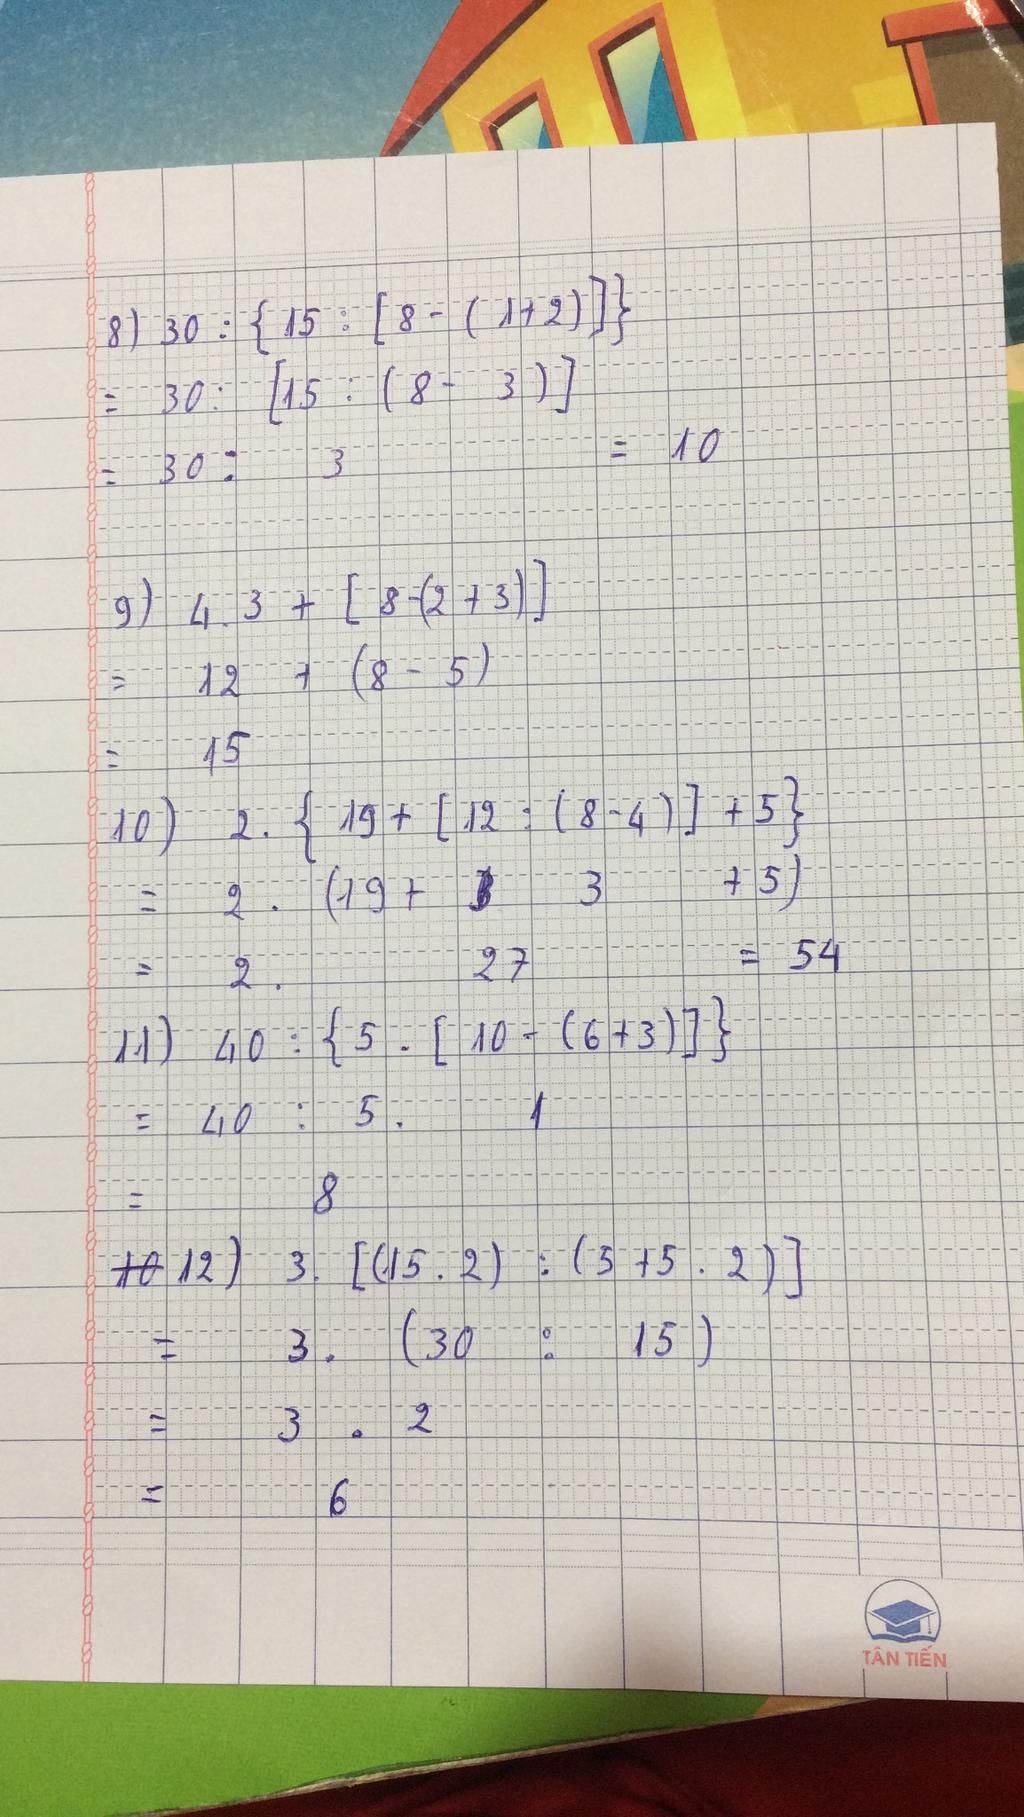 8) 30 : { 15 : [ 8 - ( 1+2 ) ] }
= 30 : [ 15 : ( 8 - 3 ) ]
= 30 : 3 = 10
9) 4 . 3 + [ 8-(2 + 3) ]
= 12 + (8 - 5)
= 15
10) 2. { 19 + [ 12 : ( 8-4 ) ] + 5 }
= 2 . (19 + 3 + 5)
= 2 . 27 = 54
11) 40 : { 5 . [ 10 - (6+3) ] }
= 40 : 5 . 1
= 8
10 12) 3. [(15 . 2) : ( 5 +5 . 2 ) ]
= 3 . (30 : 15 )
= 3 . 2
= 6
TÂN TIẾN